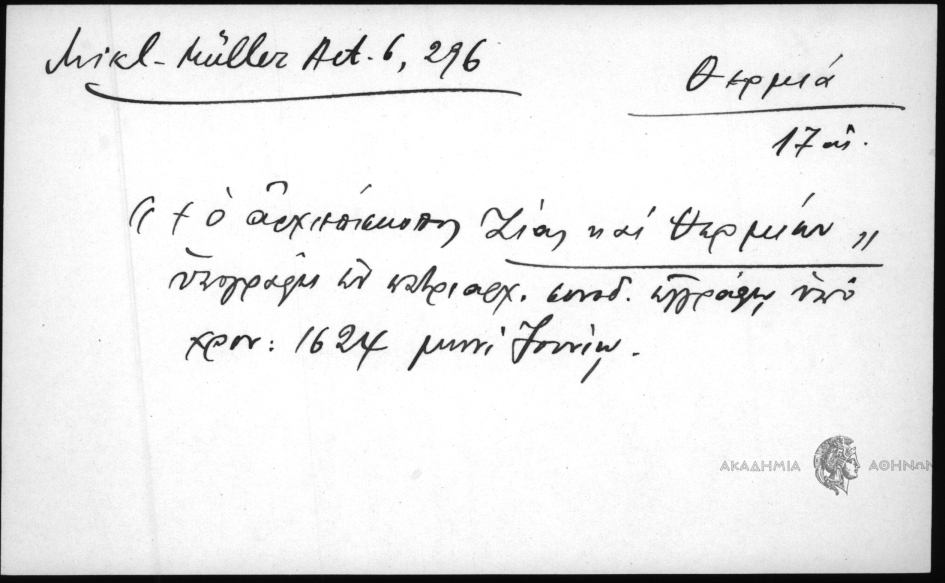 Mikl-Müller Act. 6, 296
Θερμιά
17 αἰ.
" † ὁ ἀρχιεπίσκοπος Ζίας καὶ Θερμίων "
ὑπογράφει ἐν πατριαρχ. συνοδ. ἐγγράφῳ, ὑπὸ
χρον: 1624 μηνὶ Ἰουνίῳ.
ΑΚΑΔΗΜΙΑ ΑΘΗΝΩΝ